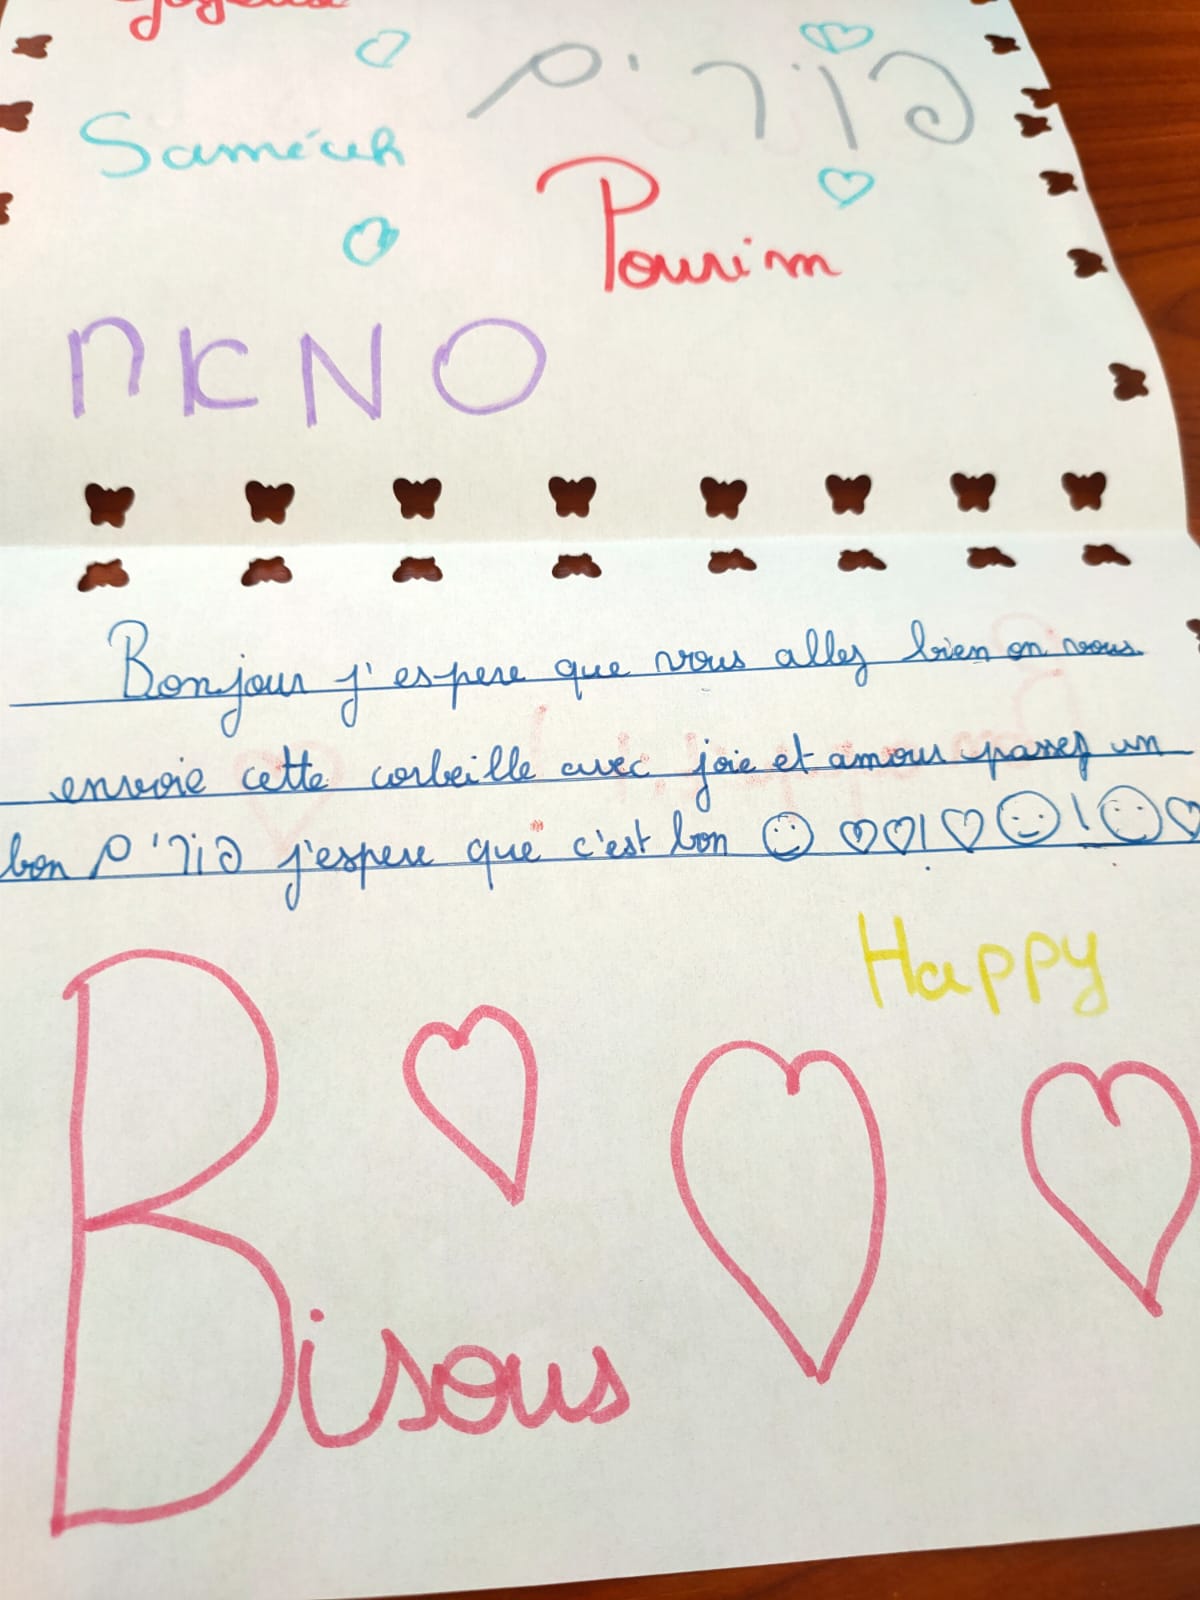 Joyeux
Saméah פורים
Pourim
סמאח
Bonjour j'espere que vous allez bien on vous
envoie cette corbeille avec joie et amour passez un
bon פורים j'espere que c'est bon ☺ ♡♡! ♡ ☺ ! ☺ ♡
Happy
Bisous